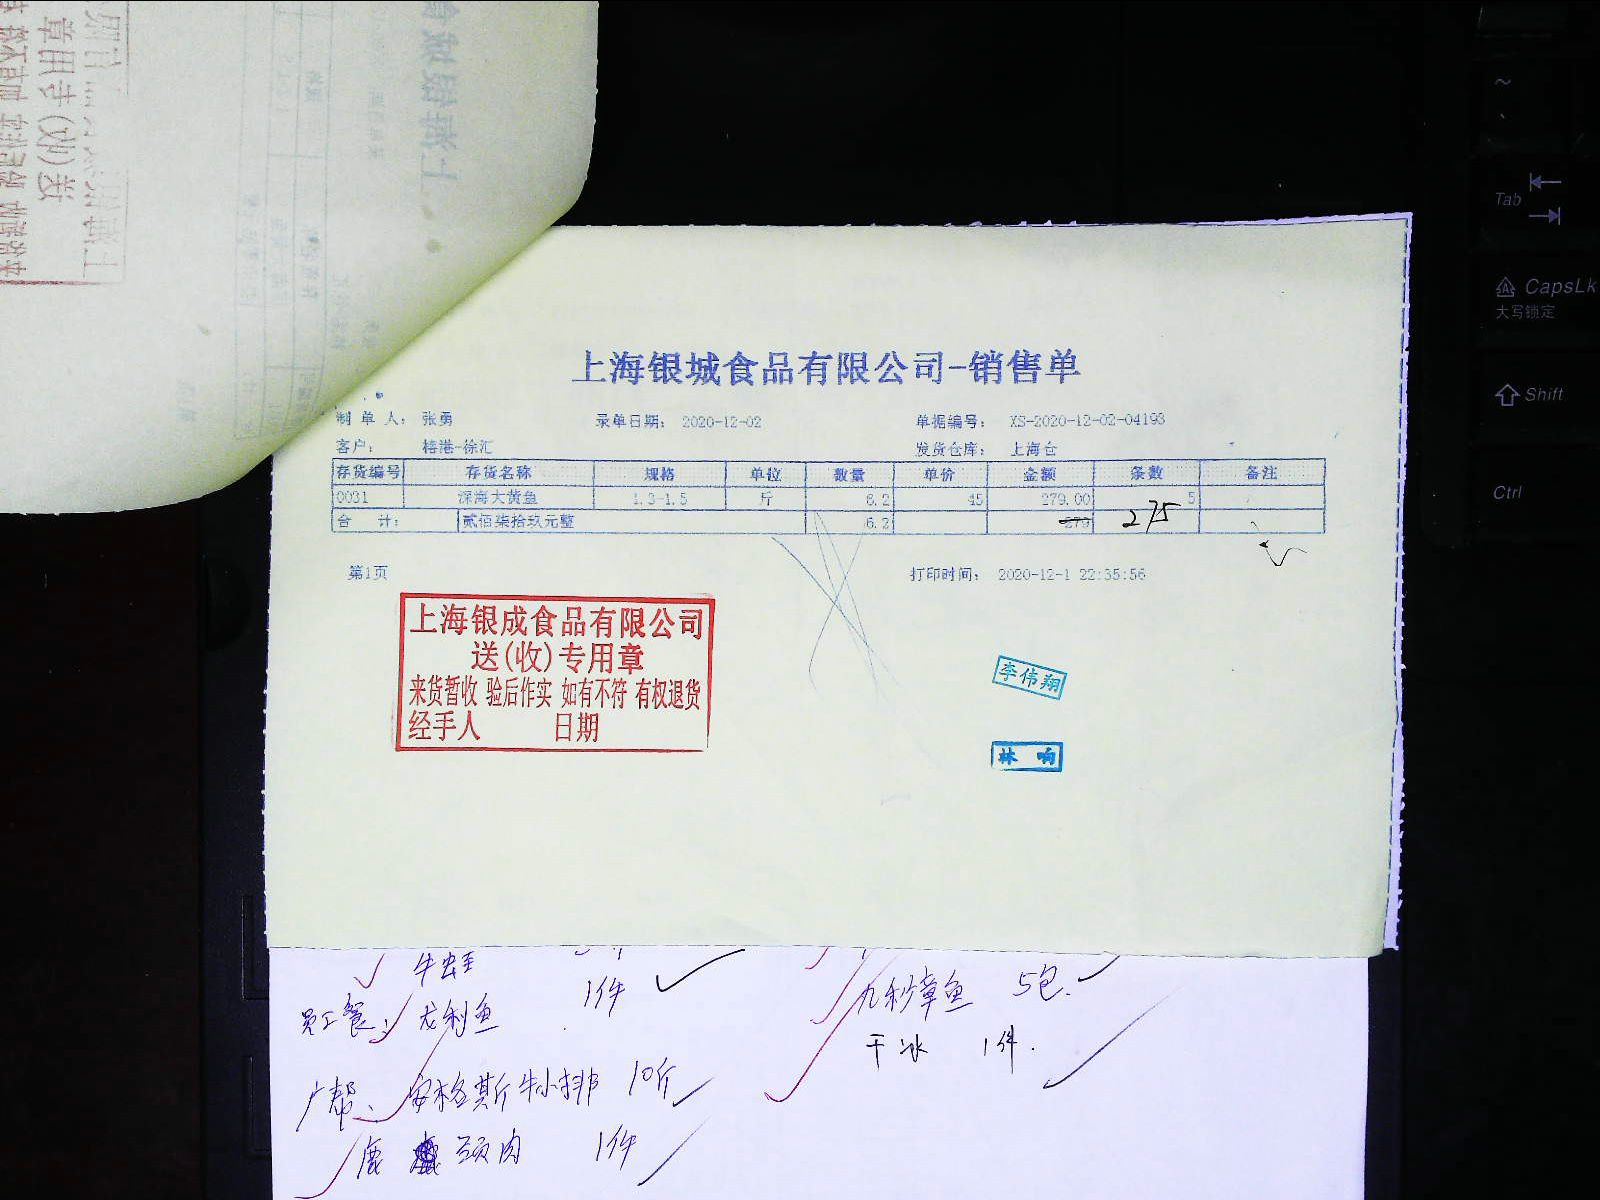 上海银城食品有限公司-销售单
制单人： 张勇 录单日期： 2020-12-02 单据编号： XS-2020-12-02-04193
客户： 椿港-徐汇 发货仓库： 上海仓
存货编号 存货名称 规格 单位 数量 单价 金额 条数 备注
0031 深海大黄鱼 1.3-1.5 斤 6.2 45 279.00 5
合 计： 贰佰柒拾玖元整 6.2 279 275
第1页 打印时间： 2020-12-1 22:35:56
上海银成食品有限公司
送(收)专用章
来货暂收 验后作实 如有不符 有权退货
经手人 日期
李伟翔
林响
牛蛙
员工餐： 龙利鱼 1件
广帮、 安格斯牛小排 10斤
鹿 颈肉 1件
章鱼 5包.
干冰 1件.
~
Tab
CapsLk
大写锁定
Shift
Ctrl